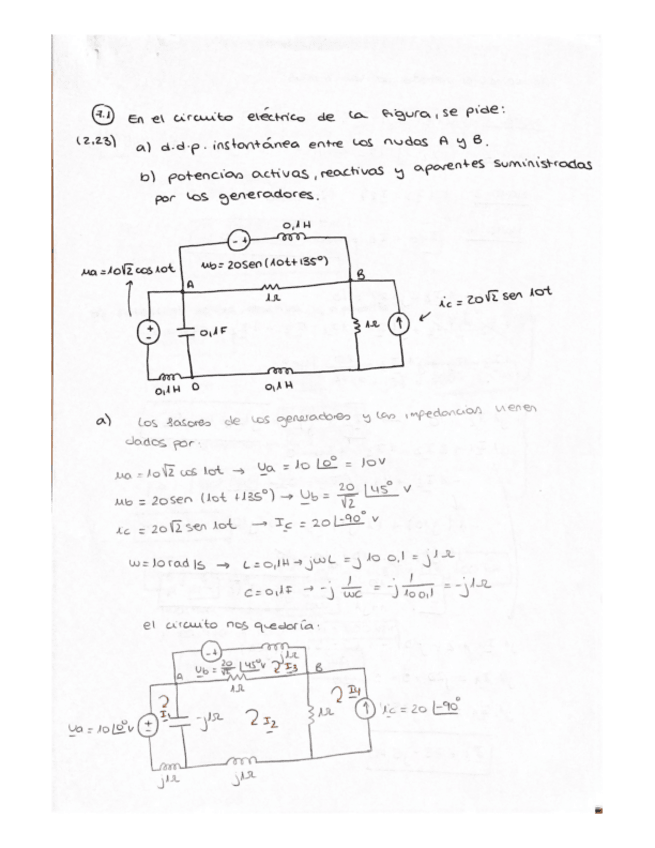 7.1 En el circuito eléctrico de la figura, se pide:
(2.23) a) d.d.p. instantánea entre los nudos A y B.
b) potencias activas, reactivas y aparentes suministradas
por los generadores.
0,1H
- +
ua=10√2 cos10t
ub=20sen(10t+135°)
A
B
1Ω
ic = 20√2 sen 10t
+
-
0,1F
1Ω
0,1H
D
0,1H
a) Los fasores de los generadores y las impedancias vienen
dados por:
ua = 10√2 cos 10t → Ua = 10 ∠0° = 10V
ub = 20sen (10t +135°) → Ub = 20/√2 ∠45° V
ic = 20√2 sen 10t → Ic = 20 ∠-90° V
ω=10 rad/s → L=0,1H → jωL = j 10 0,1 = j1Ω
C=0,1F → -j 1/ωC = -j 1/10 0,1 = -j1Ω
el circuito nos quedaría:
- +
j1Ω
Ub = 20/√2 ∠45° V
I3
A
B
1Ω
I1
-j1Ω
I2
1Ω
I4
ic = 20 ∠-90°
Ua = 10∠0° V
+
-
j1Ω
j1Ω